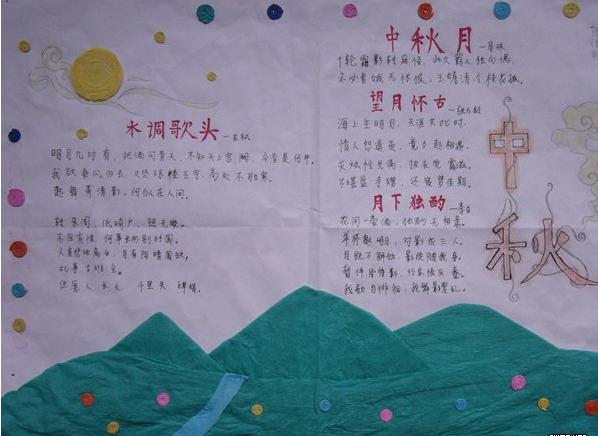 水调歌头 —苏轼
明月几时有,把酒问青天,不知天上宫阙,今昔是何年。
我欲乘风归去,又恐琼楼玉宇,高处不胜寒。
起舞弄清影,何似在人间。
转朱阁,低绮户,照无眠。
不应有恨,何事长向别时圆。
人有悲欢离合,月有阴晴圆缺,
此事古难全。
但愿人长久,千里共婵娟。
中秋月 —晏殊
十轮霜影转庭梧,此夕羁人独向隅。
未必素娥无怅恨,玉蟾清冷桂花孤。
望月怀古 —张九龄
海上生明月,天涯共此时,
情人怨遥夜,竟夕起相思。
灭烛怜光满,披衣觉露滋
不堪盈手赠,还寝梦佳期。
月下独酌 —李白
花间一壶酒,独酌无相亲。
举杯邀明月,对影成三人。
月既不解饮,影徒随我身。
暂伴月将影,行乐须及春。
我歌月徘徊,我舞影零乱。
中秋